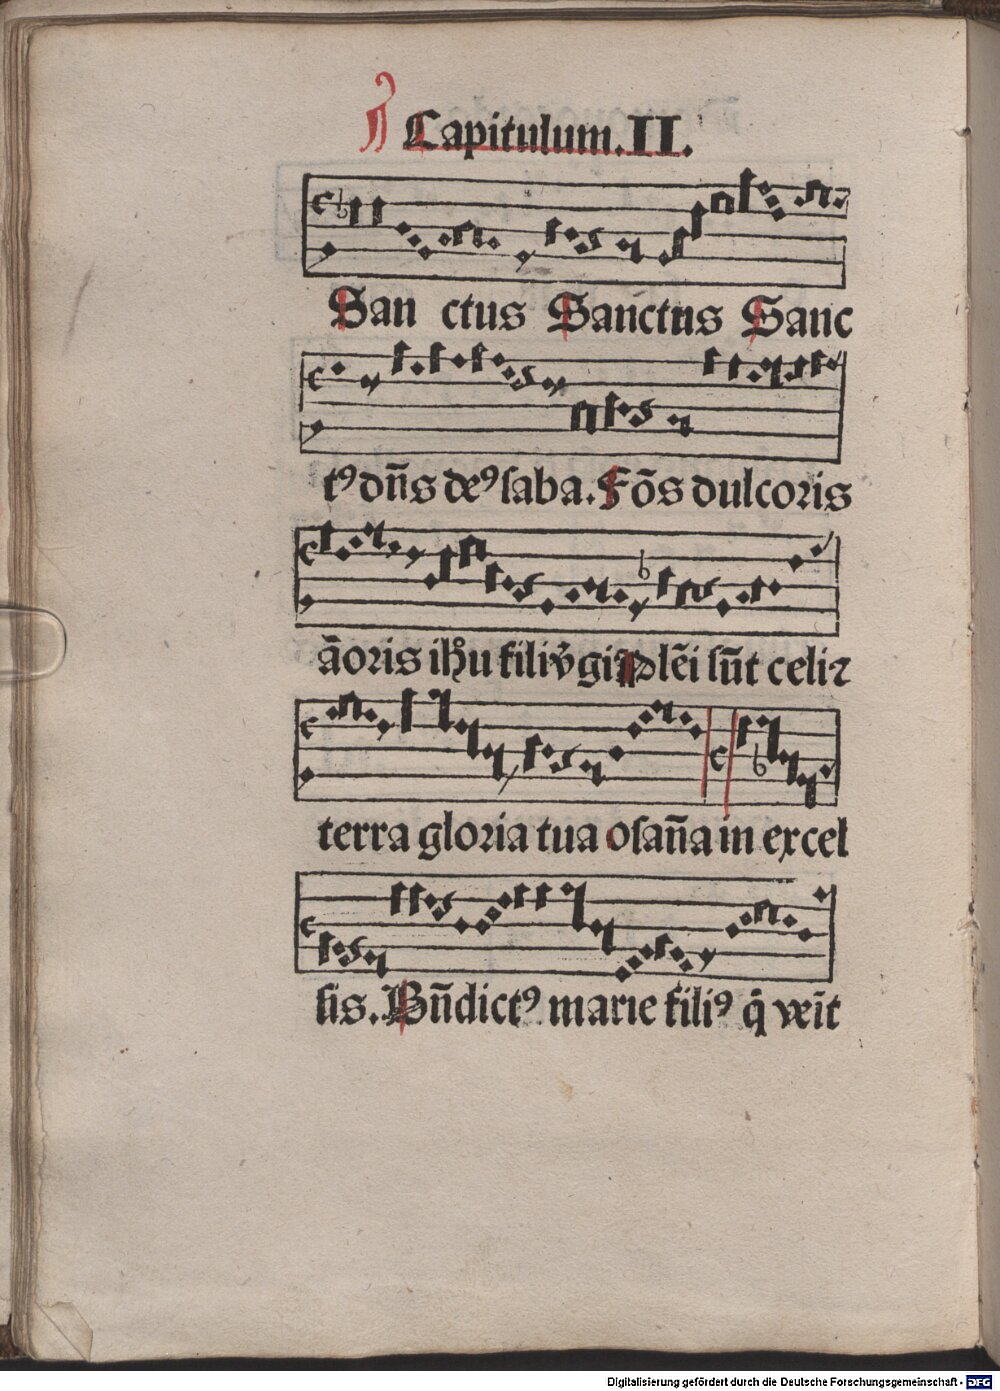 ¶ Capitulum.II.
San ctus Sanctus Sanc
tꝰ dn̄s deꝰ saba. Fōs dulcoris
āoris ihu filiv̄gi Plēi sūt celi ꝛ
terra gloria tua osan̄a in excel
sis. Bn̄dictꝰ marie filiꝰ q̇ veīt
Digitalisierung gefördert durch die Deutsche Forschungsgemeinschaft - DFG